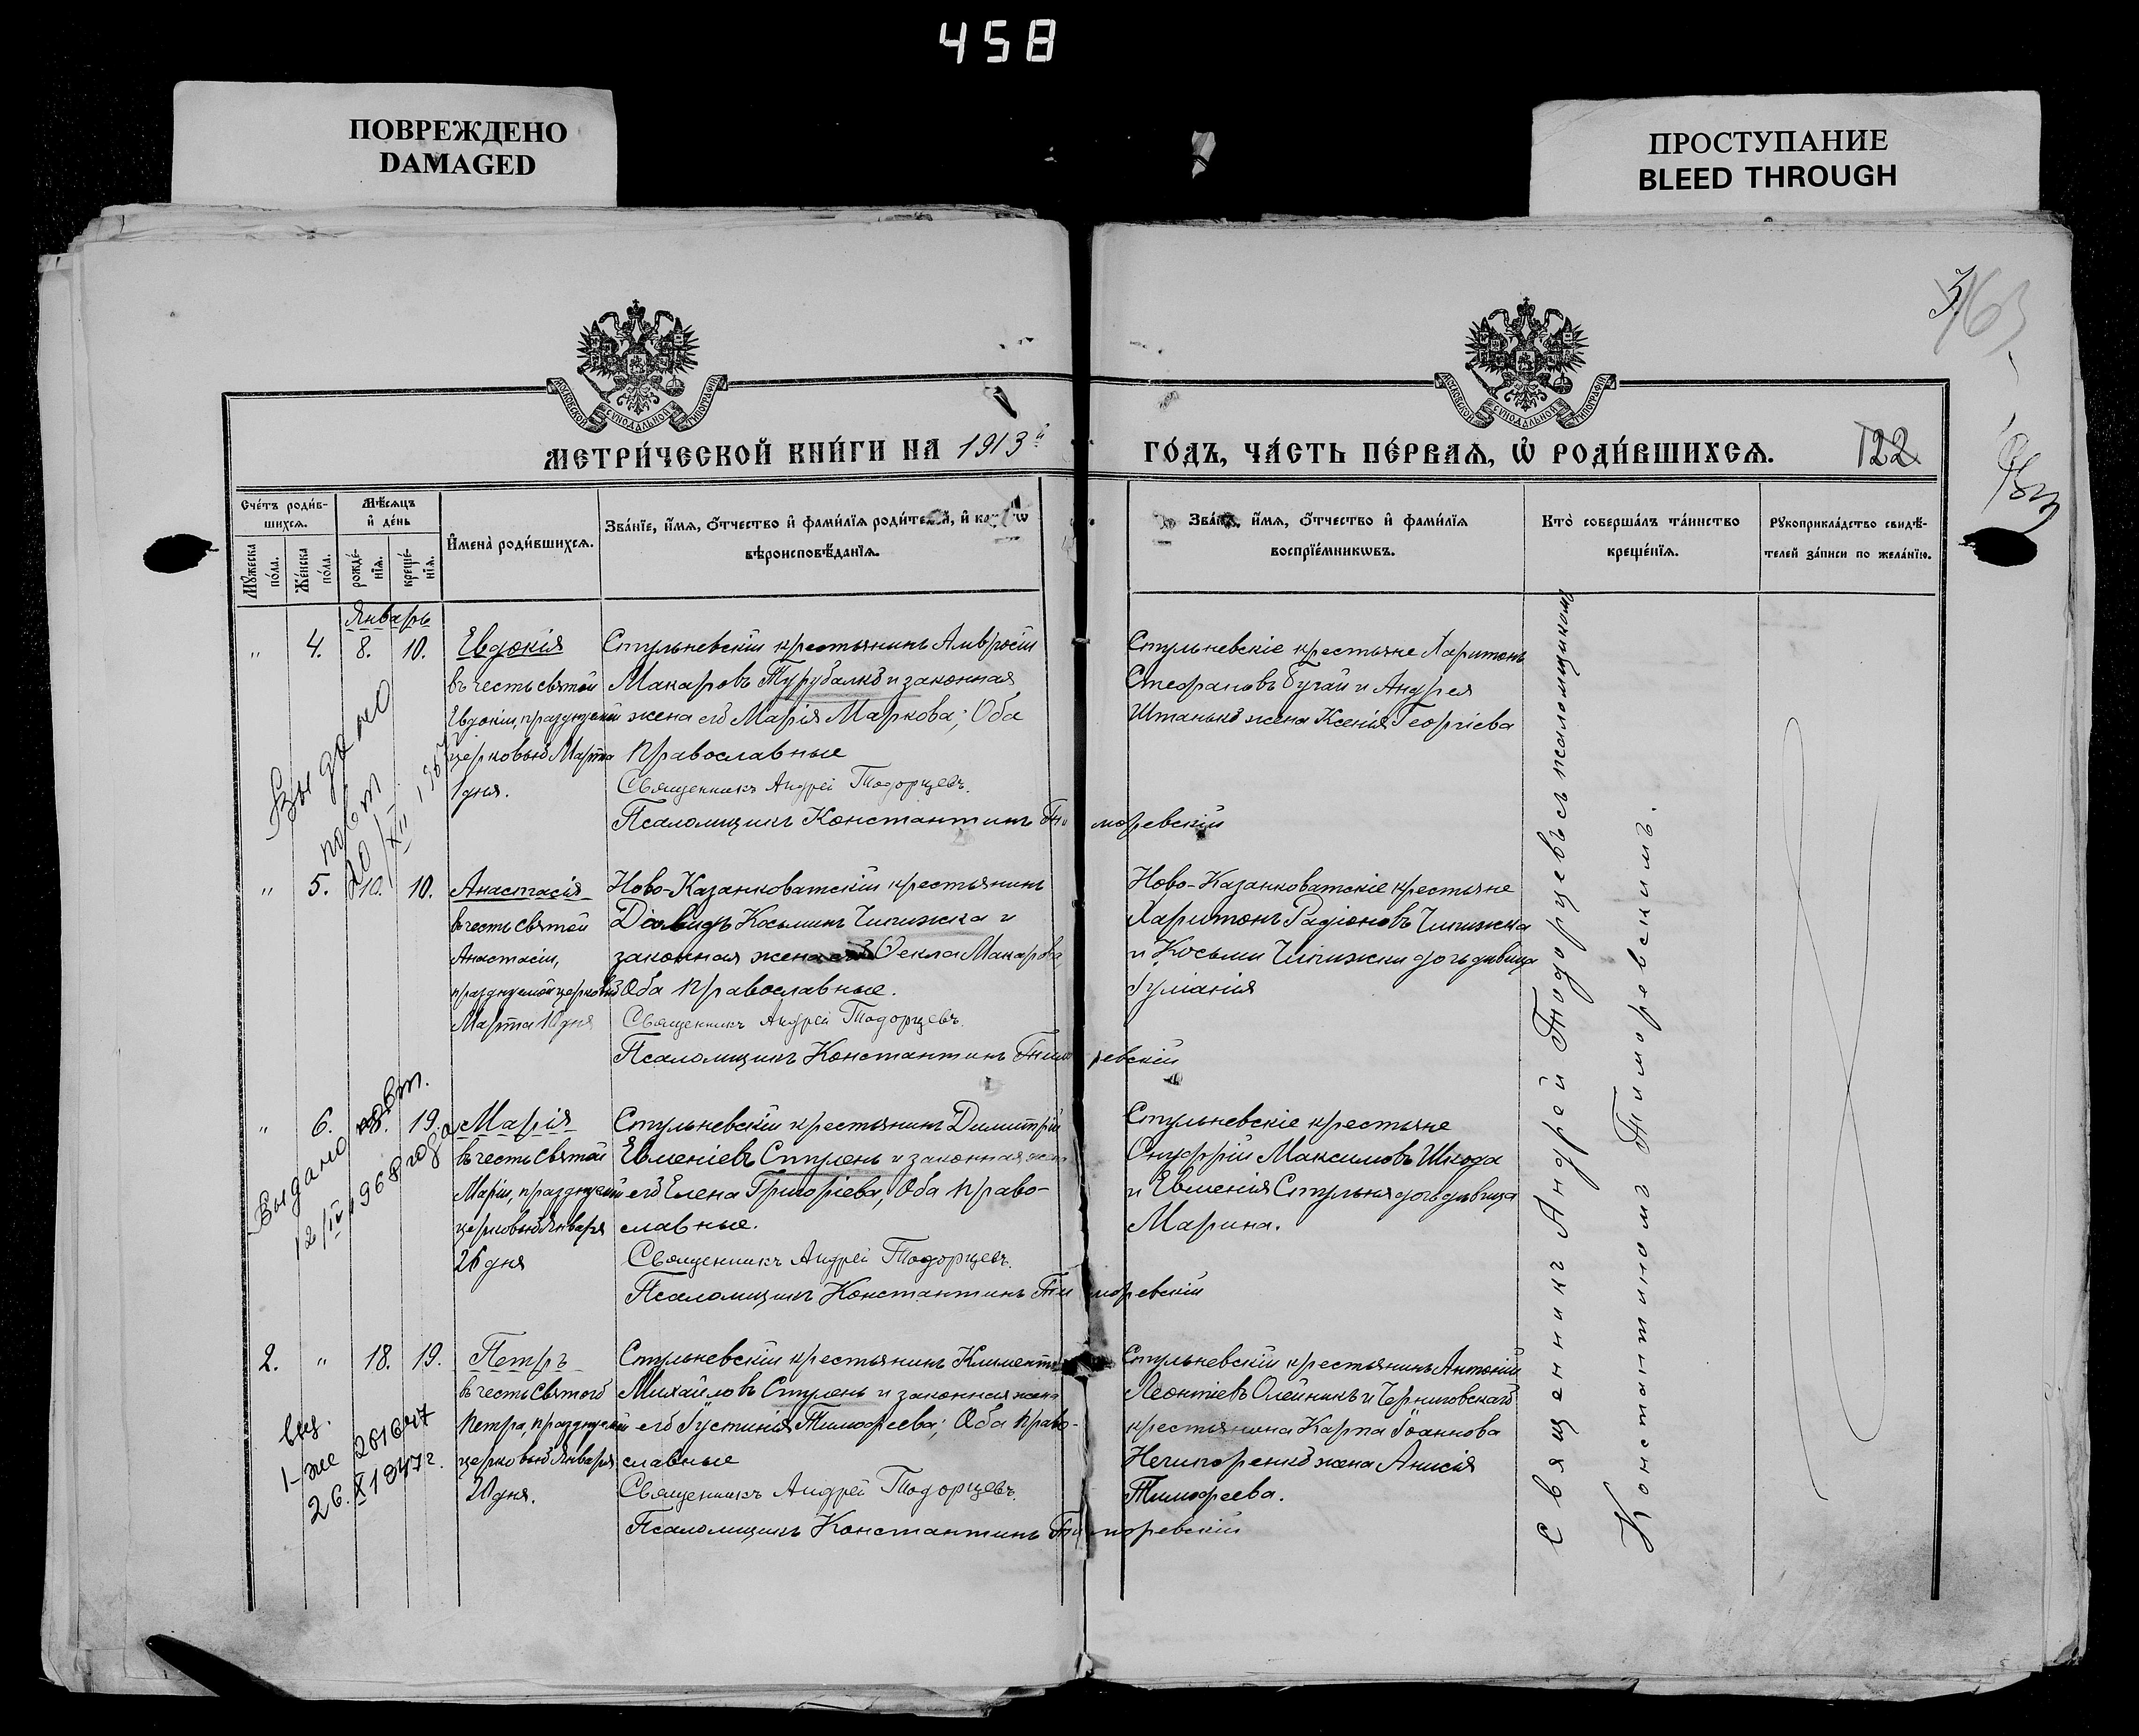 458
ПОВРЕЖДЕНО
DAMAGED
ПРОСТУПАНИЕ
BLEED THROUGH
МОСКОВСКОЙ СѴНОДАЛЬНОЙ ТИПОГРАФІИ
МОСКОВСКОЙ СѴНОДАЛЬНОЙ ТИПОГРАФІИ
МЕТРИ́ЧЕСКОЙ КНИ́ГИ НА 1913й
ГО́ДЪ, ЧА́СТЬ ПЕ́РВАѦ, Ѡ҆ РОДИ́ВШИХСѦ.
122
Сче́тъ роди́в-
шихсѧ.
Мѣ́сѧцъ
и҆ де́нь
Мꙋ́жеска
по́ла.
Же́нска
по́ла.
рожде́-
нїѧ.
креще́-
нїѧ.
И҆мена̀ роди́вшихсѧ.
Зва́нїе, и҆́мѧ, ѻ҆́тчество и҆ фами́лїѧ роди́телей, и҆
вѣроисповѣ́данїѧ.
Зва́нїе, и҆́мѧ, ѻ҆́тчество и҆ фами́лїѧ
воспрїе́мникѡвъ.
Кто̀ соверша́лъ та́инство
креще́нїѧ.
Рꙋкоприкла́дство свидѣ́-
телей за́писи по жела́нїю.
Январь
" 4. 8. 10. Евдокія
въ честь святой
Евдокіи, празднуемой
церковью Марта
1 дня.
Стульневскій крестьянинъ Амвросій
Макаровъ Турубалко и законная
жена его Марія Маркова; Оба
Православные
Священникъ Андрей Тодорцевъ.
Псаломщикъ Константинъ Тиморевскій
Стульневскіе крестьяне Харитонъ
Стефановъ Бугай и Андрея
Штанько жена Ксенія Георгіева
Выдано
повт
20/XII
" 5. 10. 10. Анастасія
въ честь святой
Анастасіи,
празднуемой церковью
Марта 10 дня
Ново-Казанковатскій крестьянинъ
Давидъ Косьминъ Чипижка и
законная жена его Ѳекла Макарова,
Оба Православные.
Священникъ Андрей Тодорцевъ.
Псаломщикъ Константинъ Тиморевскій
Ново-Казанковатскіе крестьяне
Харитонъ Радіоновъ Чипижка
и Косьмы Чипижки дочь дѣвица
Іуліанія
" 6. 18. 19. Марія
въ честь святой
Маріи, празднуемой
церковью Января
26 дня
Стульневскій крестьянинъ Димитрій
Евменіевъ Стулень и законная жена
его Елена Григоріева, Оба Право-
славные.
Священникъ Андрей Тодорцевъ.
Псаломщикъ Константинъ Тиморевскій
Стульневскіе крестьяне
Онуфрій Максимовъ Шкода
и Евменія Стульня дочь дѣвица
Марина.
Выдано повт.
12/IV 1968 года
2. " 18. 19. Петръ
въ честь святого
Петра, празднуемой
церковью Января
20 дня.
Стульневскій крестьянинъ Климентій
Михайловъ Стулень и законная жена
его Іустинія Тимофеева; Оба Право-
славные
Священникъ Андрей Тодорцевъ.
Псаломщикъ Константинъ Тиморевскій
Стульневскій крестьянинъ Антоній
Леонтіевъ Олейникъ и Черниговскаго
крестьянина Карпа Іоаннова
Нечипоренко жена Анисія
Тимофеева.
1-же 261647
26.X 1947 г.
Священникъ Андрей Тодорцевъ съ псаломщикомъ
Константиномъ Тиморевскимъ.